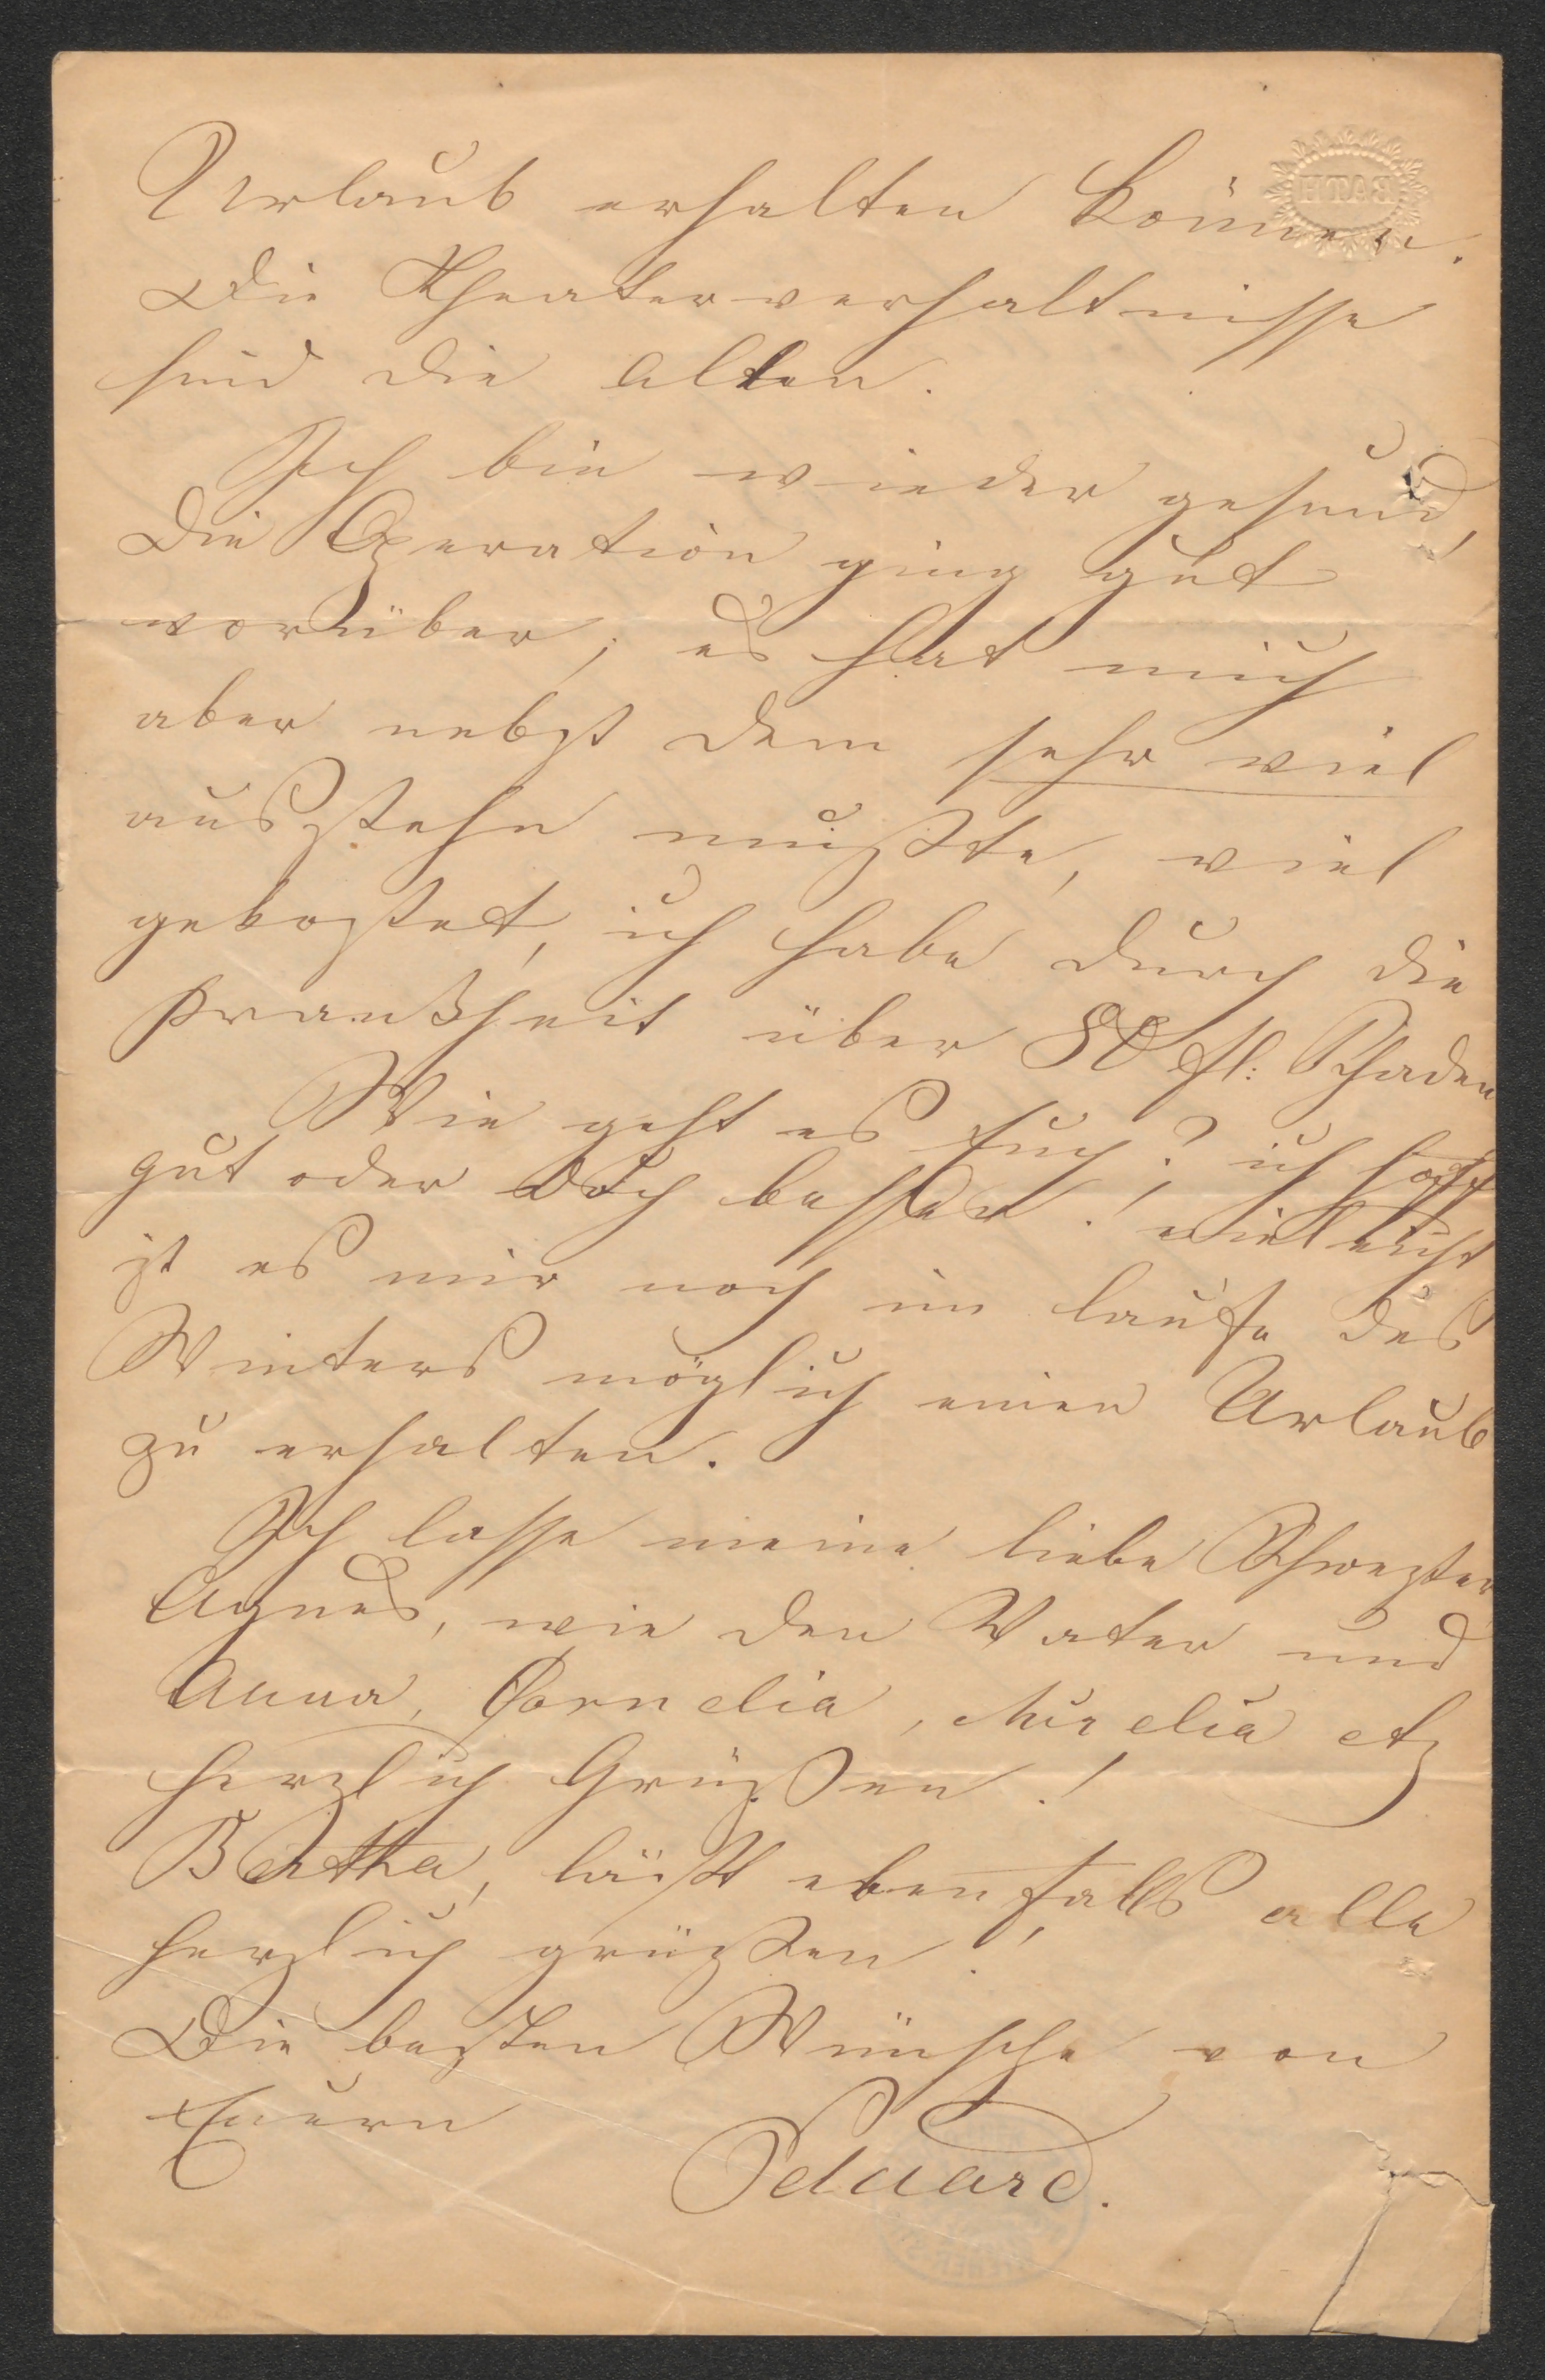 Urlaub erhalten können.
Die Theaterverhältnisse
sind die alten.
Ich bin wieder gesund,
die Operation ging gut
vorüber; es hat mich
aber nebst dem sehr viel
ausstehn mußte, viel
gekostet, ich habe durch die
Krankheit über 80 fl: Schaden
Wie geht es Euch? ich hoffe
gut oder doch besser! vielleicht
ist es mir noch im laufe des
Winters möglich einen Urlaub
zu erhalten.
Ich lasse meine liebe Schwester
Agnes, wie den Vater und
Anna, Cornelia, Aurelia etz
herzlich Grüßen!
Bertha, läßt ebenfalls alle
herzlich grüßen!
Die besten Wünsche von
Euern
Eduard.
BATH